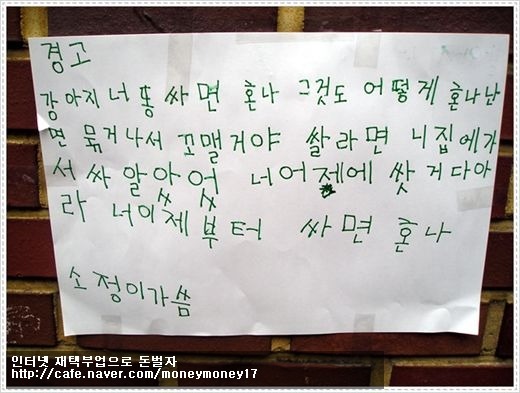 경고
강아지 너 똥 싸면 혼나 그것도 어떻게 혼나난
면 묶거나서 꼬맬거야 쌀라면 니집에가
서 싸 알았었 너어제에 쌋 거다아
라 너이제부터 싸면 혼나
소정이가씀
인터넷 재택부업으로 돈벌자
http://cafe.naver.com/moneymoney17